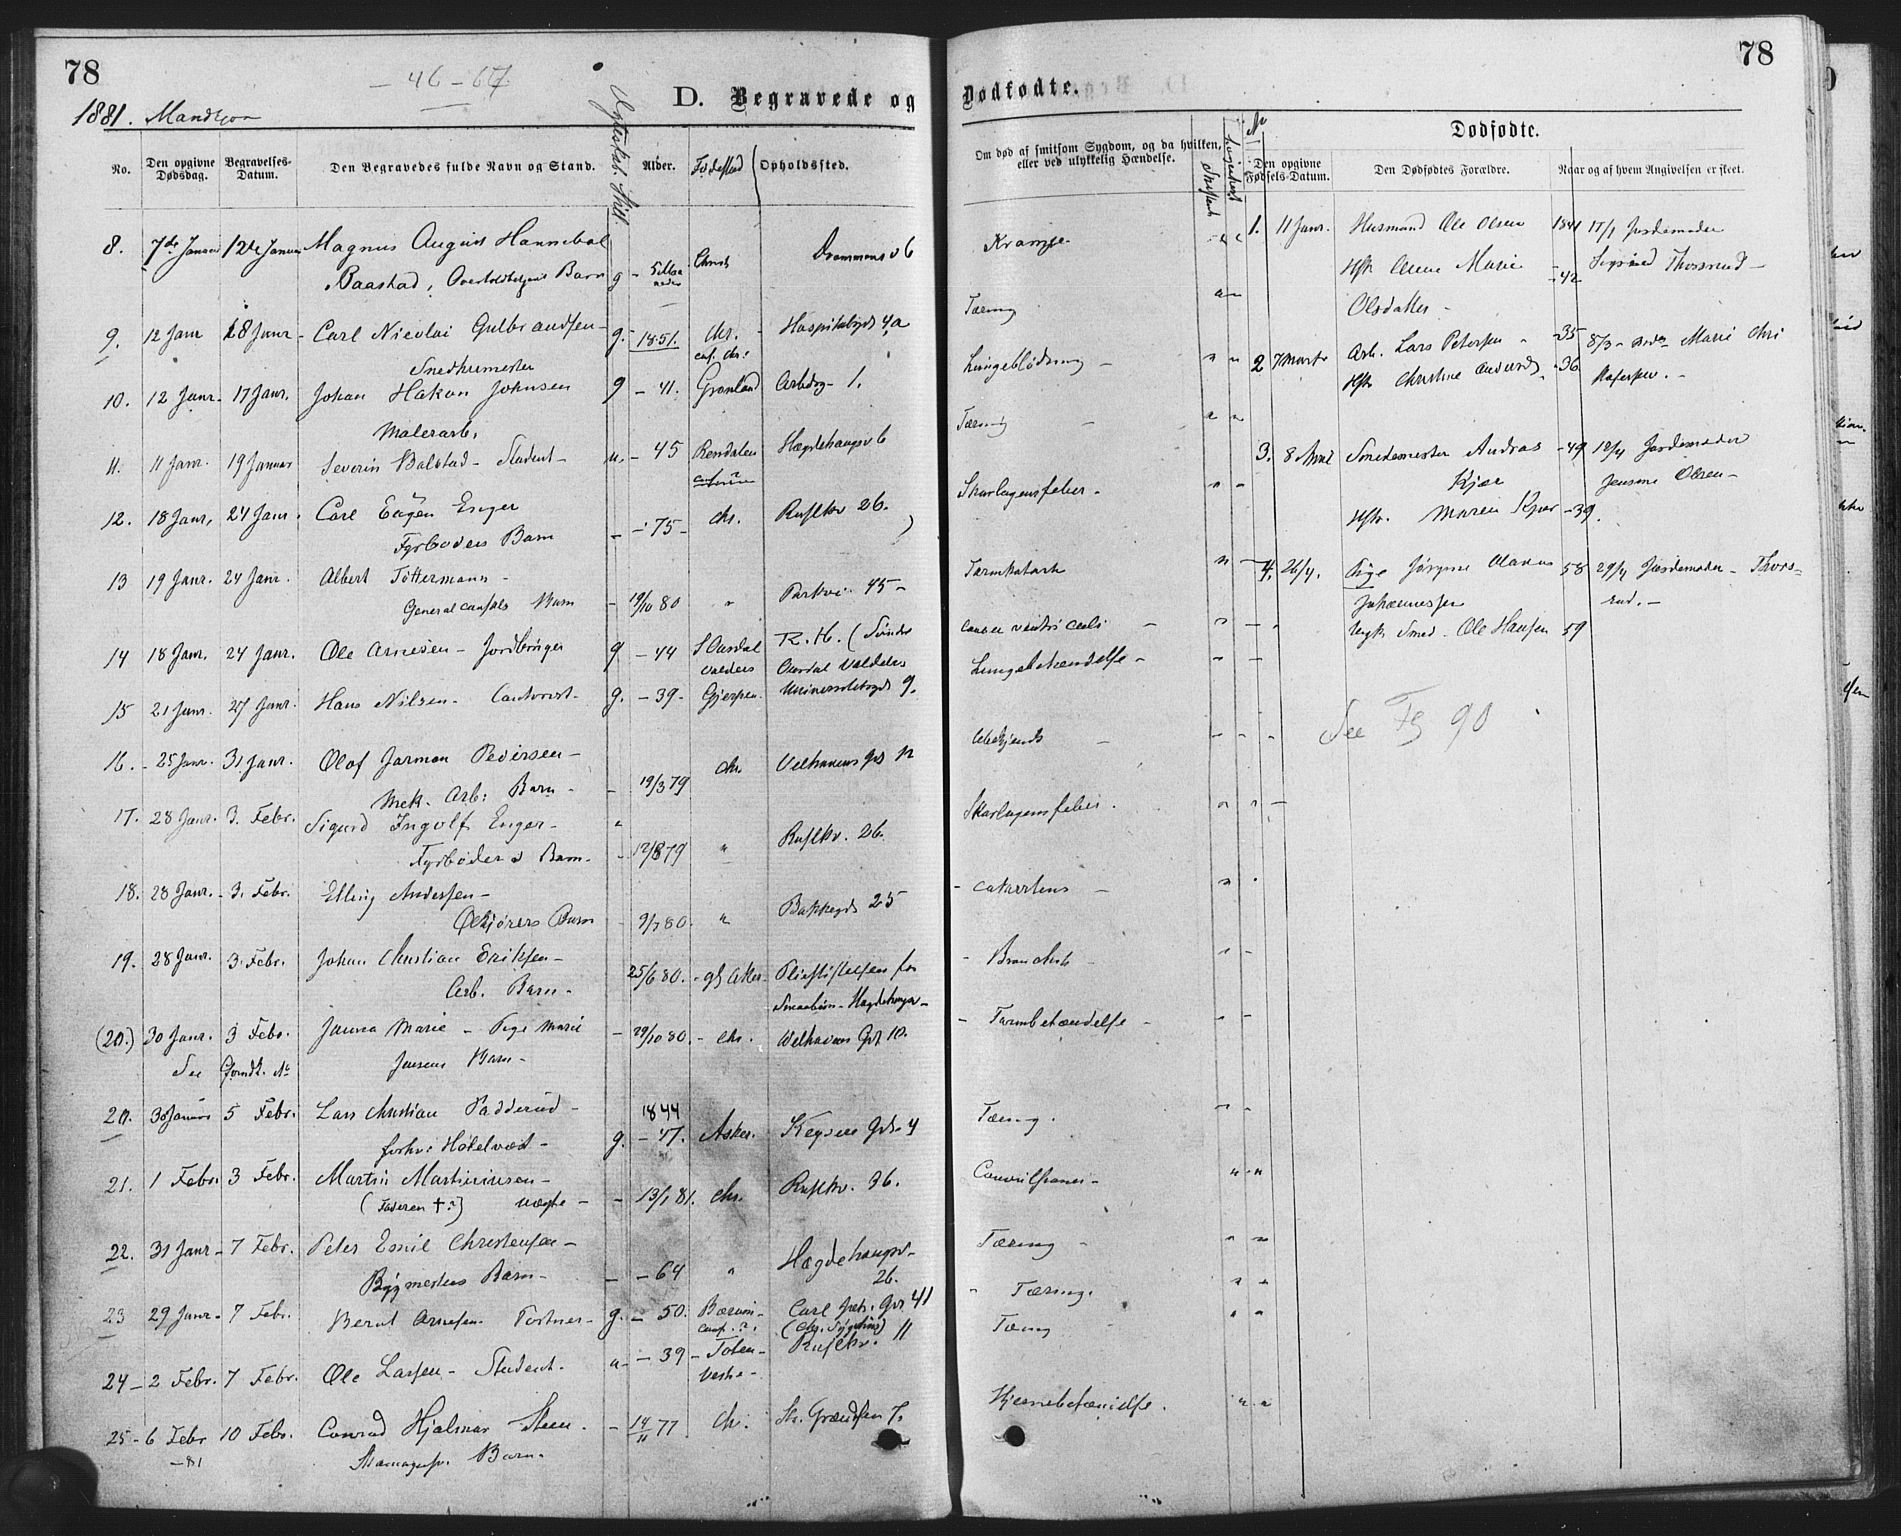 78
- 46 - 67
1881. Mandkjøn
D. Begravede og
No. Den opgivne Dødsdag. Begravelses-Datum. Den Begravedes fulde Navn og Stand. Alder. Fødested Opholdssted.
8. 7de Januar 12te Januar Magnus August Hannibal
Baastad, Barn g - 5 Maaneder Christ. Drammensv 6
9. 12 Janr 18 Janr - Carl Nicolai Gulbrandsen - g. 1851. Chr. Hospitalsgd 4a
Snedkermester
10. 12 Janr. 17 Janr. Johan Hakon Johnsen g - 41. Grønland Arbdsg - 1.
Malerarb.
11. 11 Janr. 19 Januar Severin Balstad - Student - u. - 45 Rendalen Hægdehaugsv 6
12. 18 Janr. 24 Janr. Carl Eugen Enger
Fyrbøders Barn - - 75 - Chr. Rusløkv 26.
13 19 Janr. 24 Janr. Albert Töttermann -
Generalconsuls Barn - 19/10 80 " Parkvei 45 -
14 18 Janr. 24 Janr. Ole Arnesen - Jordbruger g - 44 S Aurdal R. H. (Søndre
Valders Aurdal Valders
15 21 Janr. 27 Janr. Hans Nilsen - g. - 39 - Gjerpen. Universitetsgd 9.
16. - 25 Janr. 31 Janr. Olaf Jarman Pedersen -
Mek. Arb. Barn - - 19/3 79 Chr. Velhavens gd 12
17. 28 Janr. 3. Febr. Sigurd Ingolf Enger -
Fyrbøder s Barn - - 12/8 79 " Rusløkv. 26.
18. 28 Janr. - 3. Febr. Elling Andersen -
Ølkjørers Barn - 9/7 80. " Bakkegd 25
19. 28 Janr. 3. Febr. Johan Christian Eriksen -
Arb. Barn - 25/6 80. - gl Aker - Pleiestiftelsen for
Smaabørn - Hægdehaugen -
(20.) 30 Janr. 3 Febr. Janna Marie - Pige Marie - 29/10 80. - Chr. Welhavens Gd 10.
See Qvindk. No Jensens Barn -
20. 30 Januar 5 Febr. Lars Christian Padderud - 1844
forhv: Hotelvært - g. - 47. Asker. Keysers Gd. 4
21. 1 Febr. 3 Febr. Martin Martiniusen -
(Faderen † ?) uægte - - 13/1 81. Chr. Rusløkv. 36.
22. 31 Janr - 7 Febr. Peter Emil Christensen -
Bygmesters Barn - - - 64 " Hægdehaugsv -
26.
23 29 Janr - 7 Febr. Bernt Arnesen Portner - g. - 50. Bærum - Carl Joh. Gd 41
(Chr. Sygehus)
24 - 2 Febr. 7 Febr. Ole Larsen - Student - u - - 39 - Toten - Rusløkv. 11
Vestre -
25 - 6 Febr 10 Febr. Conrad Hjalmar Steen. - 14/11 77 Chr. St. Grændsen 7.
- 81 Barn -
Dødfødte.
78
Om død af smitsom Sygdom, og da hvilken, eller ved ulykkelig Hændelse.
Krampe
Tæring
Lungeblødning -
Tæring -
Skarlagensfeber -
Tarmkatarh
Cancer ventriculi -
Lungebetændelse -
Ubekjendt -
Skarlagensfeber.
- Catarrhens -
- Bronchit -
- Tarmbetændelse -
Tæring.
Convulsioner -
Tæring -
" Tæring.
Tæring
Hjernebetændelse.
Dødfødte.
Den opgivne Fødsels-Datum. Den Dødfødtes Forældre. Naar og af hvem Angivelsen er skeet.
1. 11 Janr. Husmand Ole Olsen 1841 17/1 Jordemoder
Hst Anne Marie - 42 Thorsrud -
Olsdatter -
2 7 Marts Arb. Lars Petersen - - 35 8/3 - Marie Chri
Hst Christine - 36
3. 8 April Smedemester Andreas - 49 12/4 Jordemoder
Kjær Jensine Olsen -
Hstr. Maren Kjær - 39.
4. 26/4. Pige Jørgine Olava 58 29/4 Jordemoder - Thors-
Johannessen rud. -
Ungk Smed. Ole Hansen 59
See Fg 90